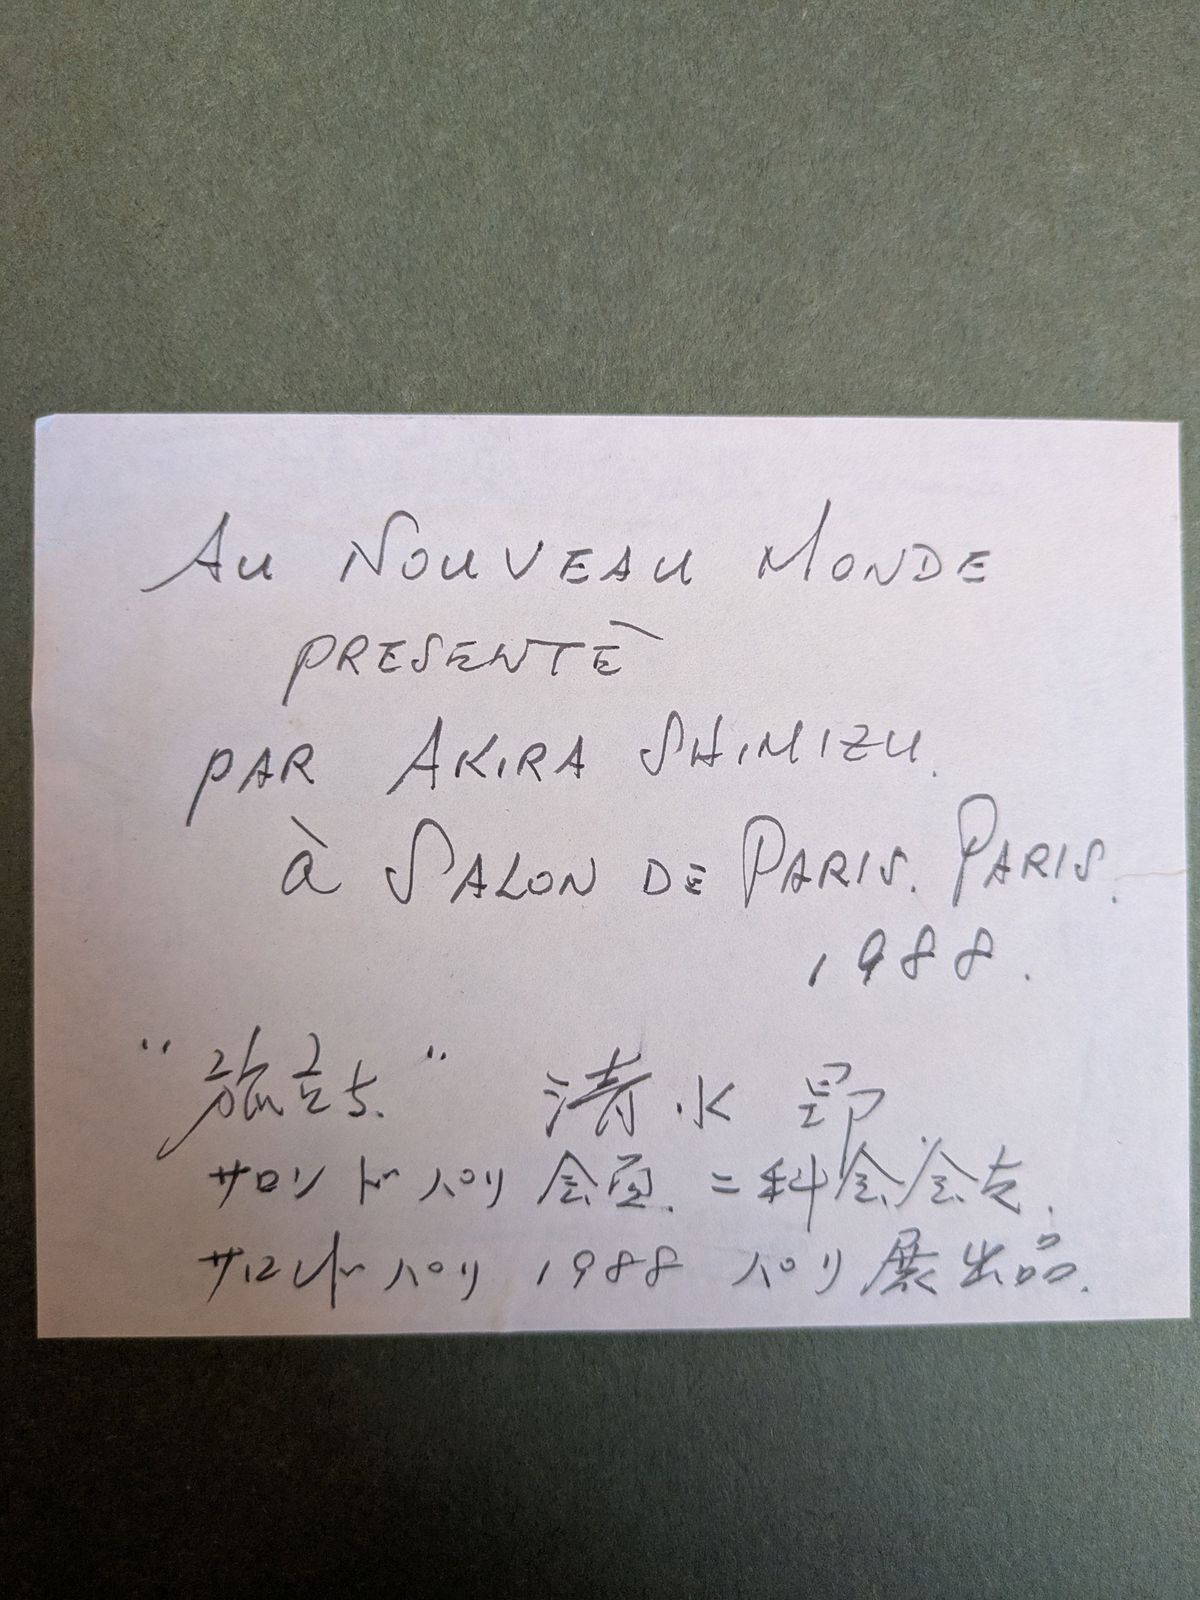 AU NOUVEAU MONDE
PRESENTÈ
PAR AKIRA SHIMIZU.
à SALON DE PARIS. PARIS.
1988.
"旅立ち" 清水 昴
サロンドパリ 会員. 二科会会友.
サロンドパリ 1988 パリ展出品.